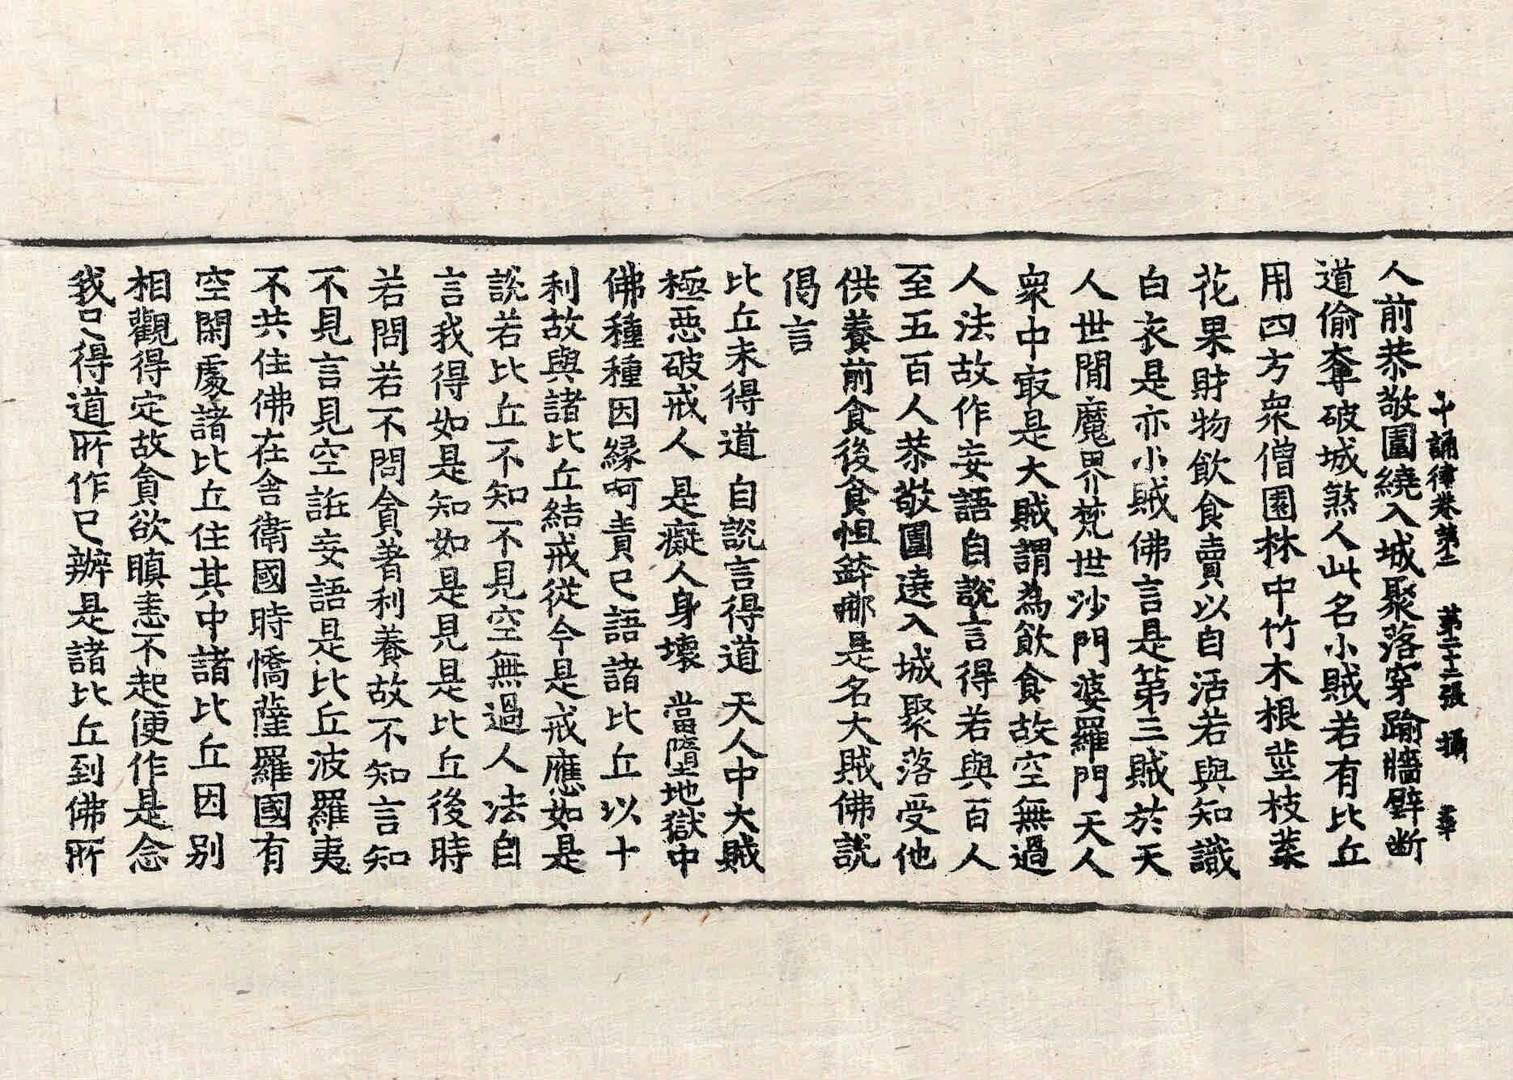 十誦律卷第二 第二十三張 攝
人前恭敬圍繞入城聚落穿踰牆壁断
道偷奪破城煞人此名小賊若有比丘
用四方衆僧園林中竹木根莖枝葉
花果財物飲食賣以自活若與知識
白衣是亦小賊佛言是第三賊於天
人世間魔界梵世沙門婆羅門天人
衆中㝡是大賊謂為飲食故空無過
人法故作妄語自說言得若與百人
至五百人恭敬圍遶入城聚落受他
供養前食後食怛鉢那是名大賊佛說
偈言
比丘未得道 自說言得道 天人中大賊
極惡破戒人 是癡人身壞 當墮地獄中
佛種種因緣呵責已語諸比丘以十
利故與諸比丘結戒從今是戒應如是
說若比丘不知不見空無過人法自
言我得如是知如是見是比丘後時
若問若不問貪著利養故不知言知
不見言見空誑妄語是比丘波羅夷
不共住佛在舍衛國時憍薩羅國有
空閑處諸比丘住其中諸比丘因别
相觀得定故貪欲瞋恚不起便作是念
我已得道所作已辦是諸比丘到佛所